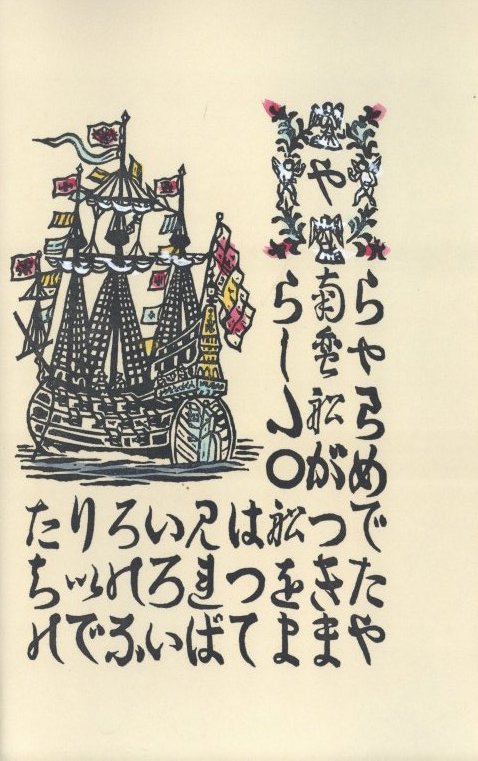 や
らやらめでたや
南蛮船がつきま
らし〇船をま
はつて
見れば
いろい
ろのふ
りいで
たちの